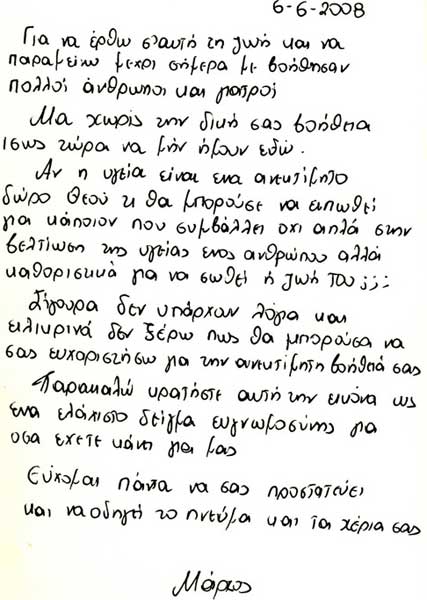 6-6-2008
Για να έρθω σ'αυτή τη ζωή και να
παραμείνω μεχρι σήμερα με βοήθησαν
πολλοί άνθρωποι και γιατροί
Μα χωρίς την δική σας βοήθεια
ισως τώρα να μήν ήμουν εδώ.
Αν η υγεία είναι ενα ανεκτίμητο
δώρο Θεού τι θα μπορούσε να ειπωθεί
για κάποιον που συμβάλλει όχι απλά στην
βελτίωση της υγείας ενος ανθρώπου αλλά
καθοριστικά για να σωθεί ή ζωή του ;;;
Σίγουρα δεν υπάρχουν λόγια και
ειλικρινά δεν ξέρω πως θα μπορούσα να
σας ευχαριστήσω για την ανεκτίμητη βοήθειά σας
Παρακαλώ κρατήστε αυτή την εικόνα ως
ενα ελάχιστο δείγμα ευγνωμοσύνης για
οσα έχετε κάνει για μας
Εύχομαι πάντα να σας προστατεύει
και να οδηγεί το πνεύμα και τα χέρια σας
Μάριος